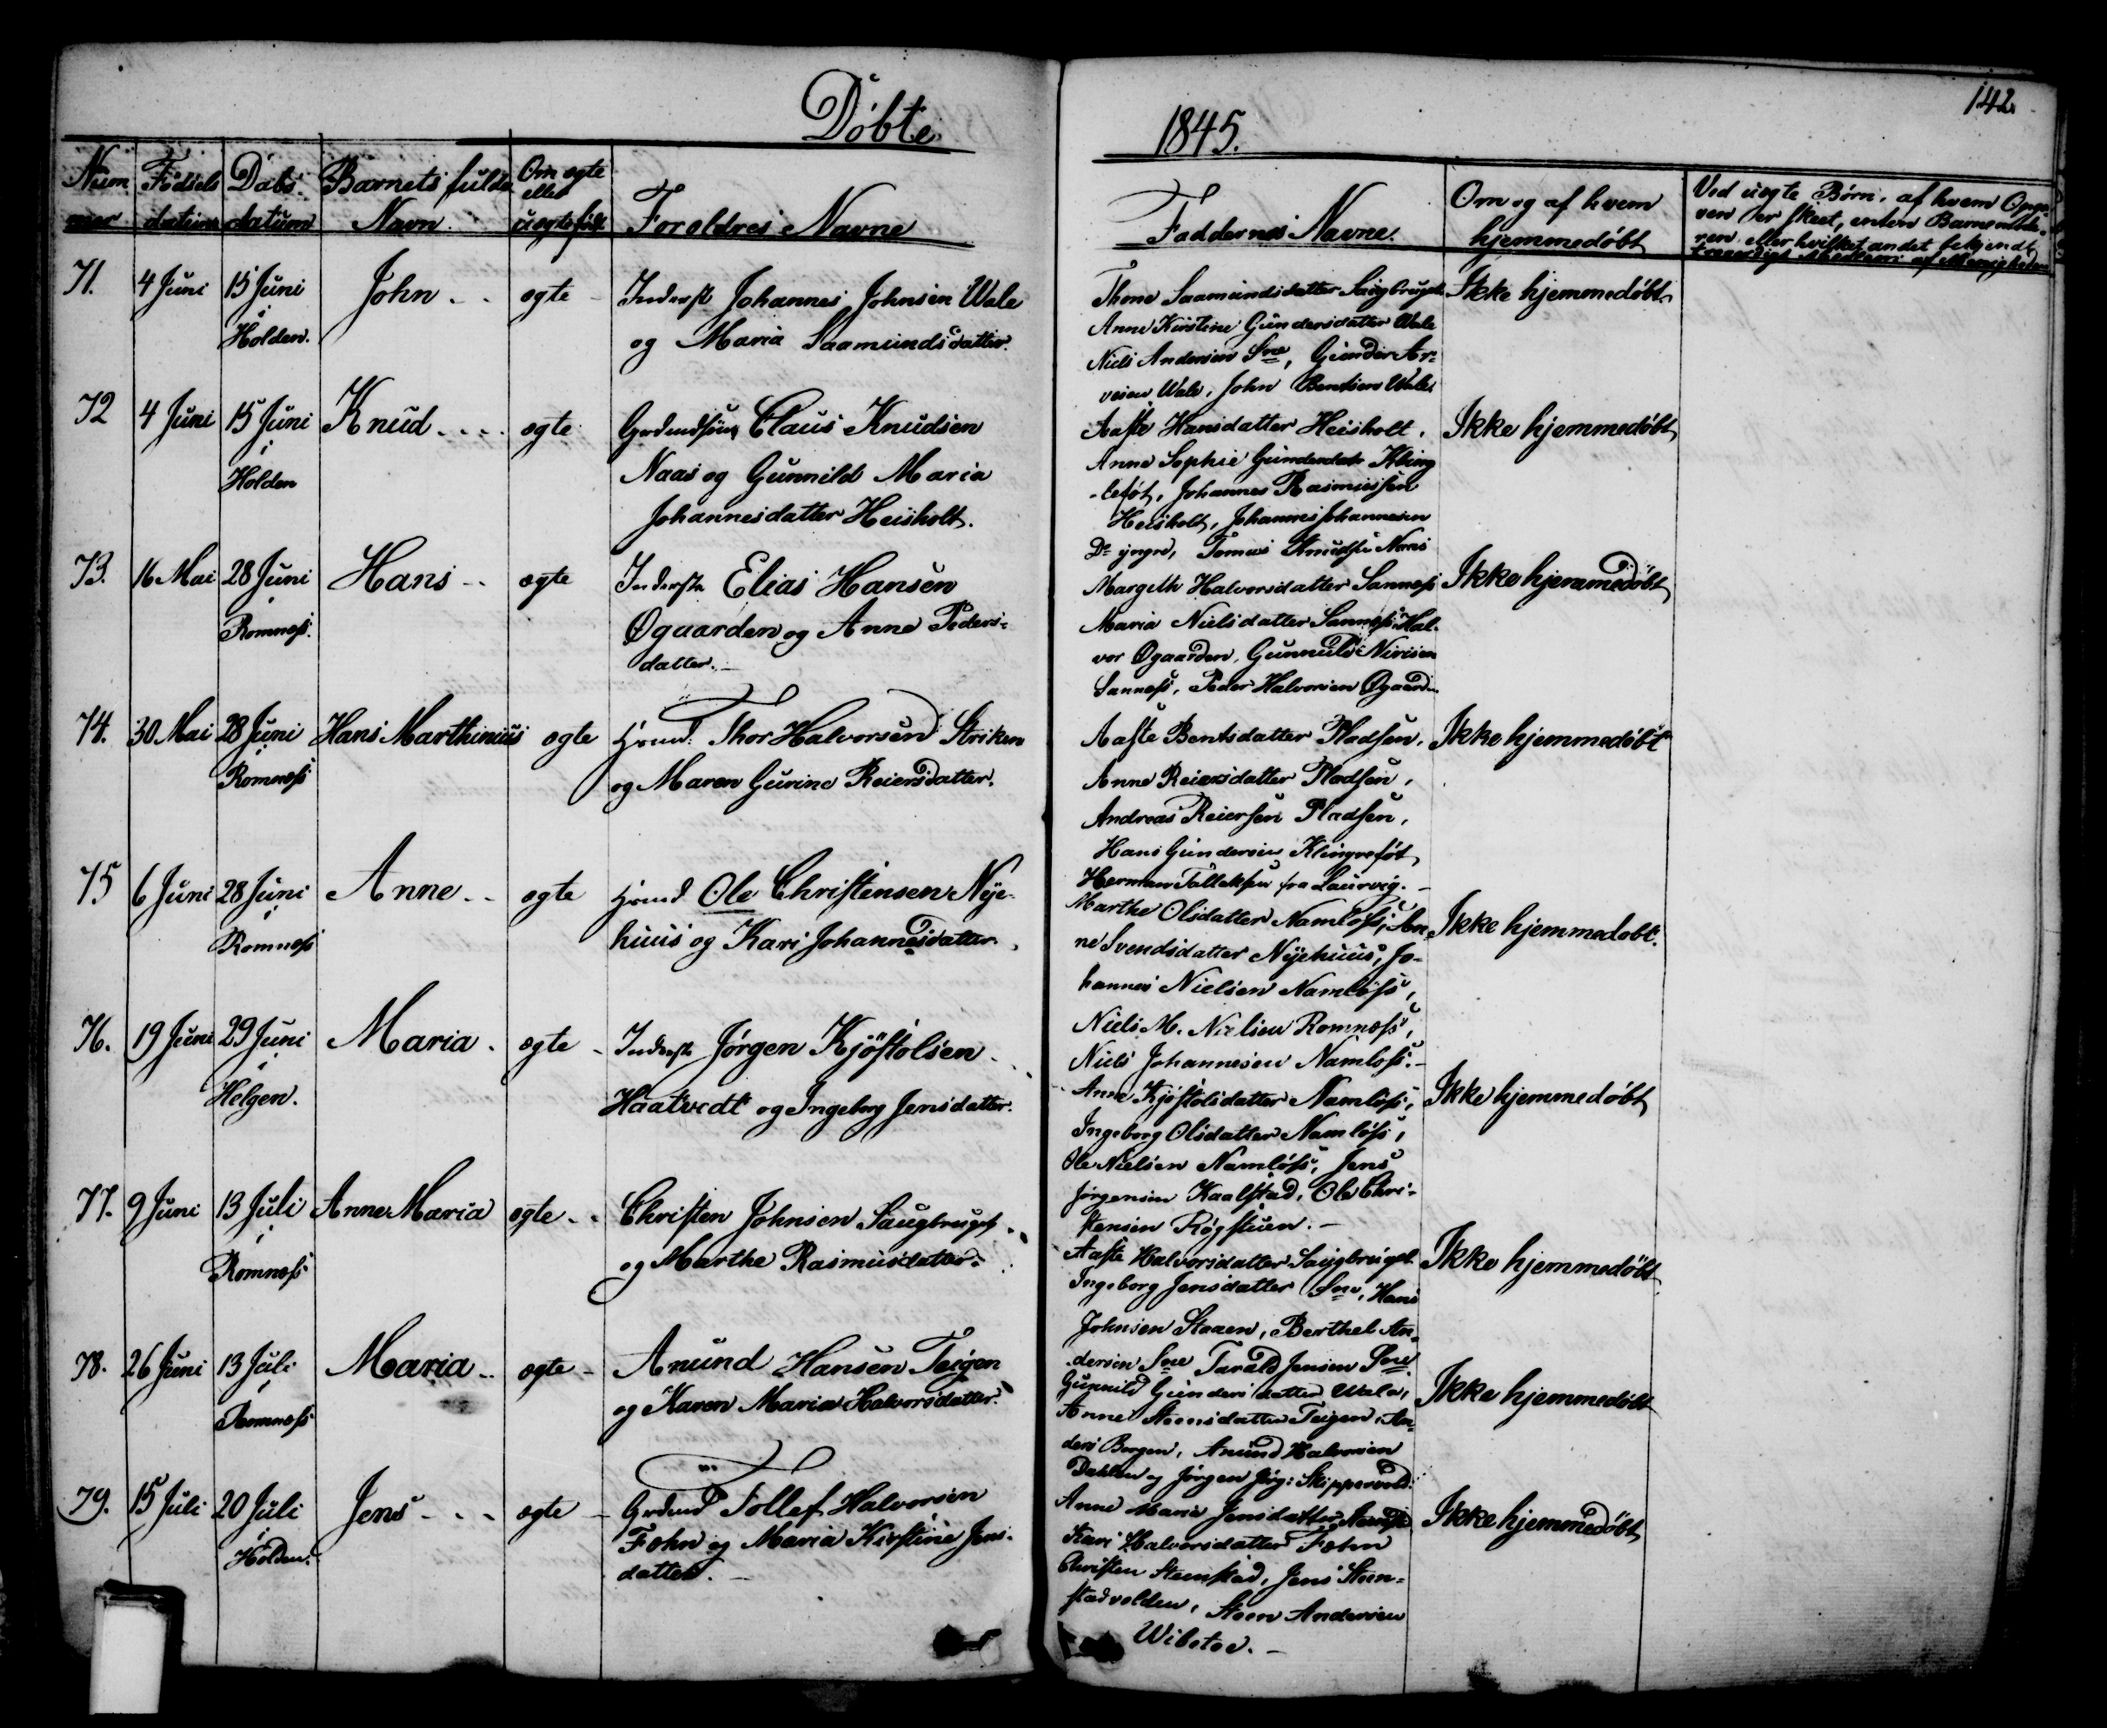 Døbte
1845.
142
Num
mer
Fødsels
datum
Daabs
datum
Barnets fulde
Navn.
Om ægte
eller
uægte født
Forældres Navne
Faddernes Navne.
Om og af hvem
hjemmedøbt
Ved uægte Børn, af hvem Opga-
ven er skeet, enten Barnemode-
ren, eller hvilket andet bekjendt
troværdigt Medlem af Menigheden
71. 4 Juni 15 Juni John ægte Inderst Johannes Johnsen Wale
i
Holden.
og Maria Saamundsdatter.
Thone Saamundsdatter Saugbruget
Anne Kirstine Gundersdatter Wale
Niels Andersen Sne, Gunder Ar-
vesen Wale, John Bentsen Wale
Ikke hjemmedøbt
72 4 Juni 15 Juni Knud ægte Gaardmands Claus Knudsen
i
Holden
Naas og Gunnild Maria
Johannesdatter Heisholt.
Aaste Hansdatter Heisholt,
Anne Sophie Gundersdatr Kling
-lefot, Johannes Rasmussen
Heisholt, Johannes Johannesen
Do yngre, Tomas Knudsen Naas
Ikke hjemmedøbt
73. 16 Mai 28 Juni Hans ægte Inderste Elias Hansen
i
Romnæss.
Øgaarden og Anne Peders-
datter.
Margith Halvorsdatter Sannæss
Maria Nielsdatter Sannæss, Hal-
vor Øgaarden, Gunnuld Nirisen
Sannæss, Peder Halvorsen Øgaard
Ikke hjemmedøbt
74. 30 Mai 28 Juni Hans Marthinius ægte Hmd. Thor Halvorsen Striken
i
Romnæss
og Maren Gurine Reiersdatter.
Aaste Bentsdatter Pladsen,
Anne Reiersdatter Pladsen,
Andreas Reiersen Pladsen,
Hans Gundersen Klingrefot
Herman Tollaksen fra Laurvig.
Ikke hjemmedøbt
75 6 Juni 28 Juni Anne ægte Hmd Ole Christensen Nye-
i
Romnæss
huus og Kari Johannesdatter
Marthe Olsdatter Namløss, An-
ne Svendsdatter Nyehuus, Jo-
hannes Nielsen Namløss,
Niels M. Nielsen Romnæss,
Niels Johannesen Namløss.
Ikke hjemmedøbt.
76. 19 Juni 29 Juni Maria ægte Inderst Jørgen Kjøstolsen
i
Helgen.
Haatvedt og Ingeborg Jensdatter.
Anne Kjøstolsdatter Namløss,
Ingeborg Olsdatter Namløss,
Ole Nielsen Namløss, Jens
Jørgensen Kaalstad, Ole Chri-
stensen Røgstuen.
Ikke hjemmedøbt
77. 9 Juni 13 Juli Anne Maria ægte Christen Johnsen Saugbruget
i
Romnæss
og Marthe Rasmusdatter
Aaste Halvorsdatter Saugbruget
Ingeborg Jensdatter Sne, Hans
Johnsen Staaen, Berthel An-
dersen Sne Tarald Jensen Sne
Ikke hjemmedøbt
78. 26 Juni 13 Juli Maria ægte Anund Hansen Teigen
i
Romnæss
og Karen Maria Halvorsdatter.
Gunnild Gundersdatter Wale,
Anne Steensdatter Teigen, An-
ders Bergen, Anund Halvorsen
Dahlen og Jørgen Jørg: Skippervold.
Ikke hjemmedøbt
79. 15 Juli 20 Juli Jens ægte Gaardmd Tollef Halvorsen
i
Holden.
Fæhn og Maria Kirstine Jens-
datter.
Anne Marie Jensdatter
Kari Halvorsdatter Fæhn
Christen Steenstad, Jens Steen-
stadvolden, Steen Andersen
Wibetoe.
Ikke hjemmedøbt